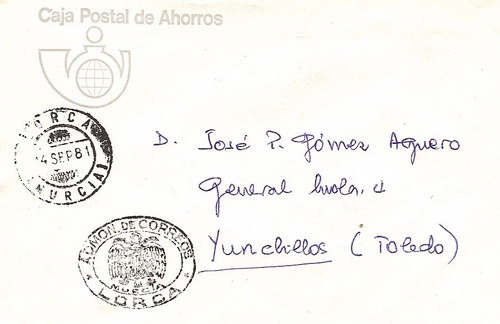 Caja Postal de Ahorros
LORCA
4 SEP 81
(MURCIA)
D. José P. Gómez Aguero
General Mola, 4
Yunclillos (Toledo)
ADMON. DE CORREOS
MURCIA
LORCA